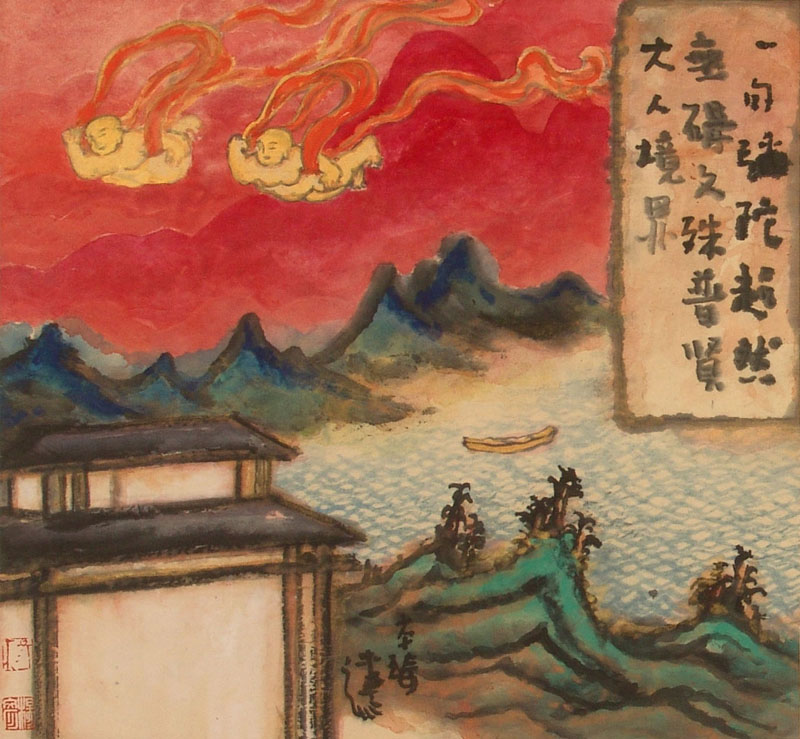 一句彌陀超然
無礙文殊普賢
大人境界